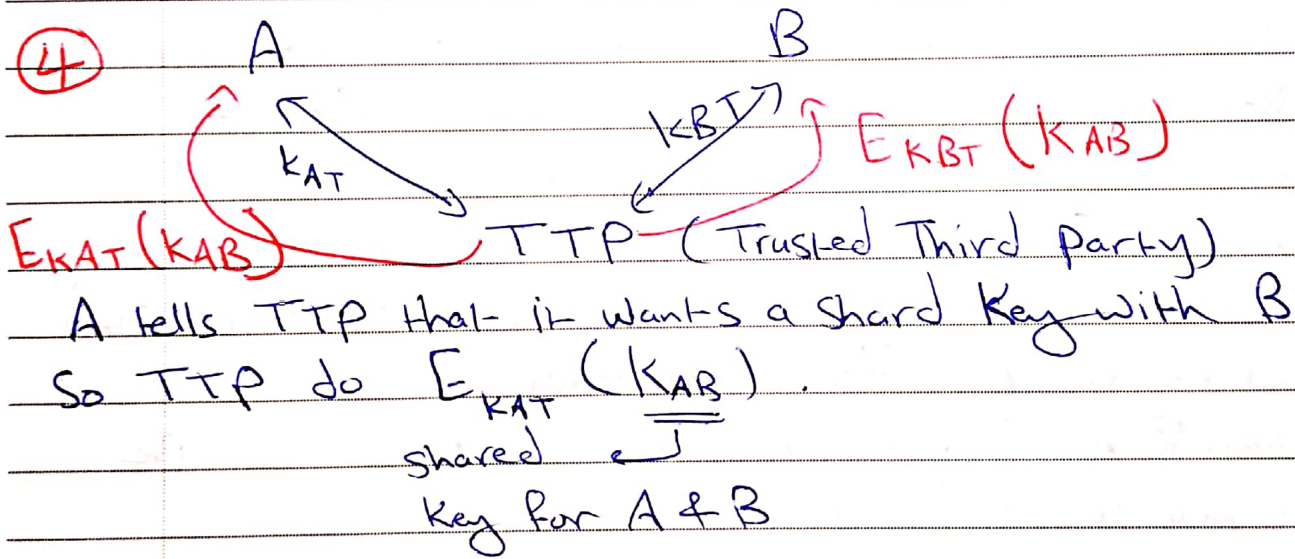 ④ A B
K_AT K_BT E_KBT (K_AB)
E_KAT (K_AB) TTP (Trusted Third party)
A tells TTP that it wants a shard Key with B
So TTP do E_KAT (K_AB).
shared
Key for A & B